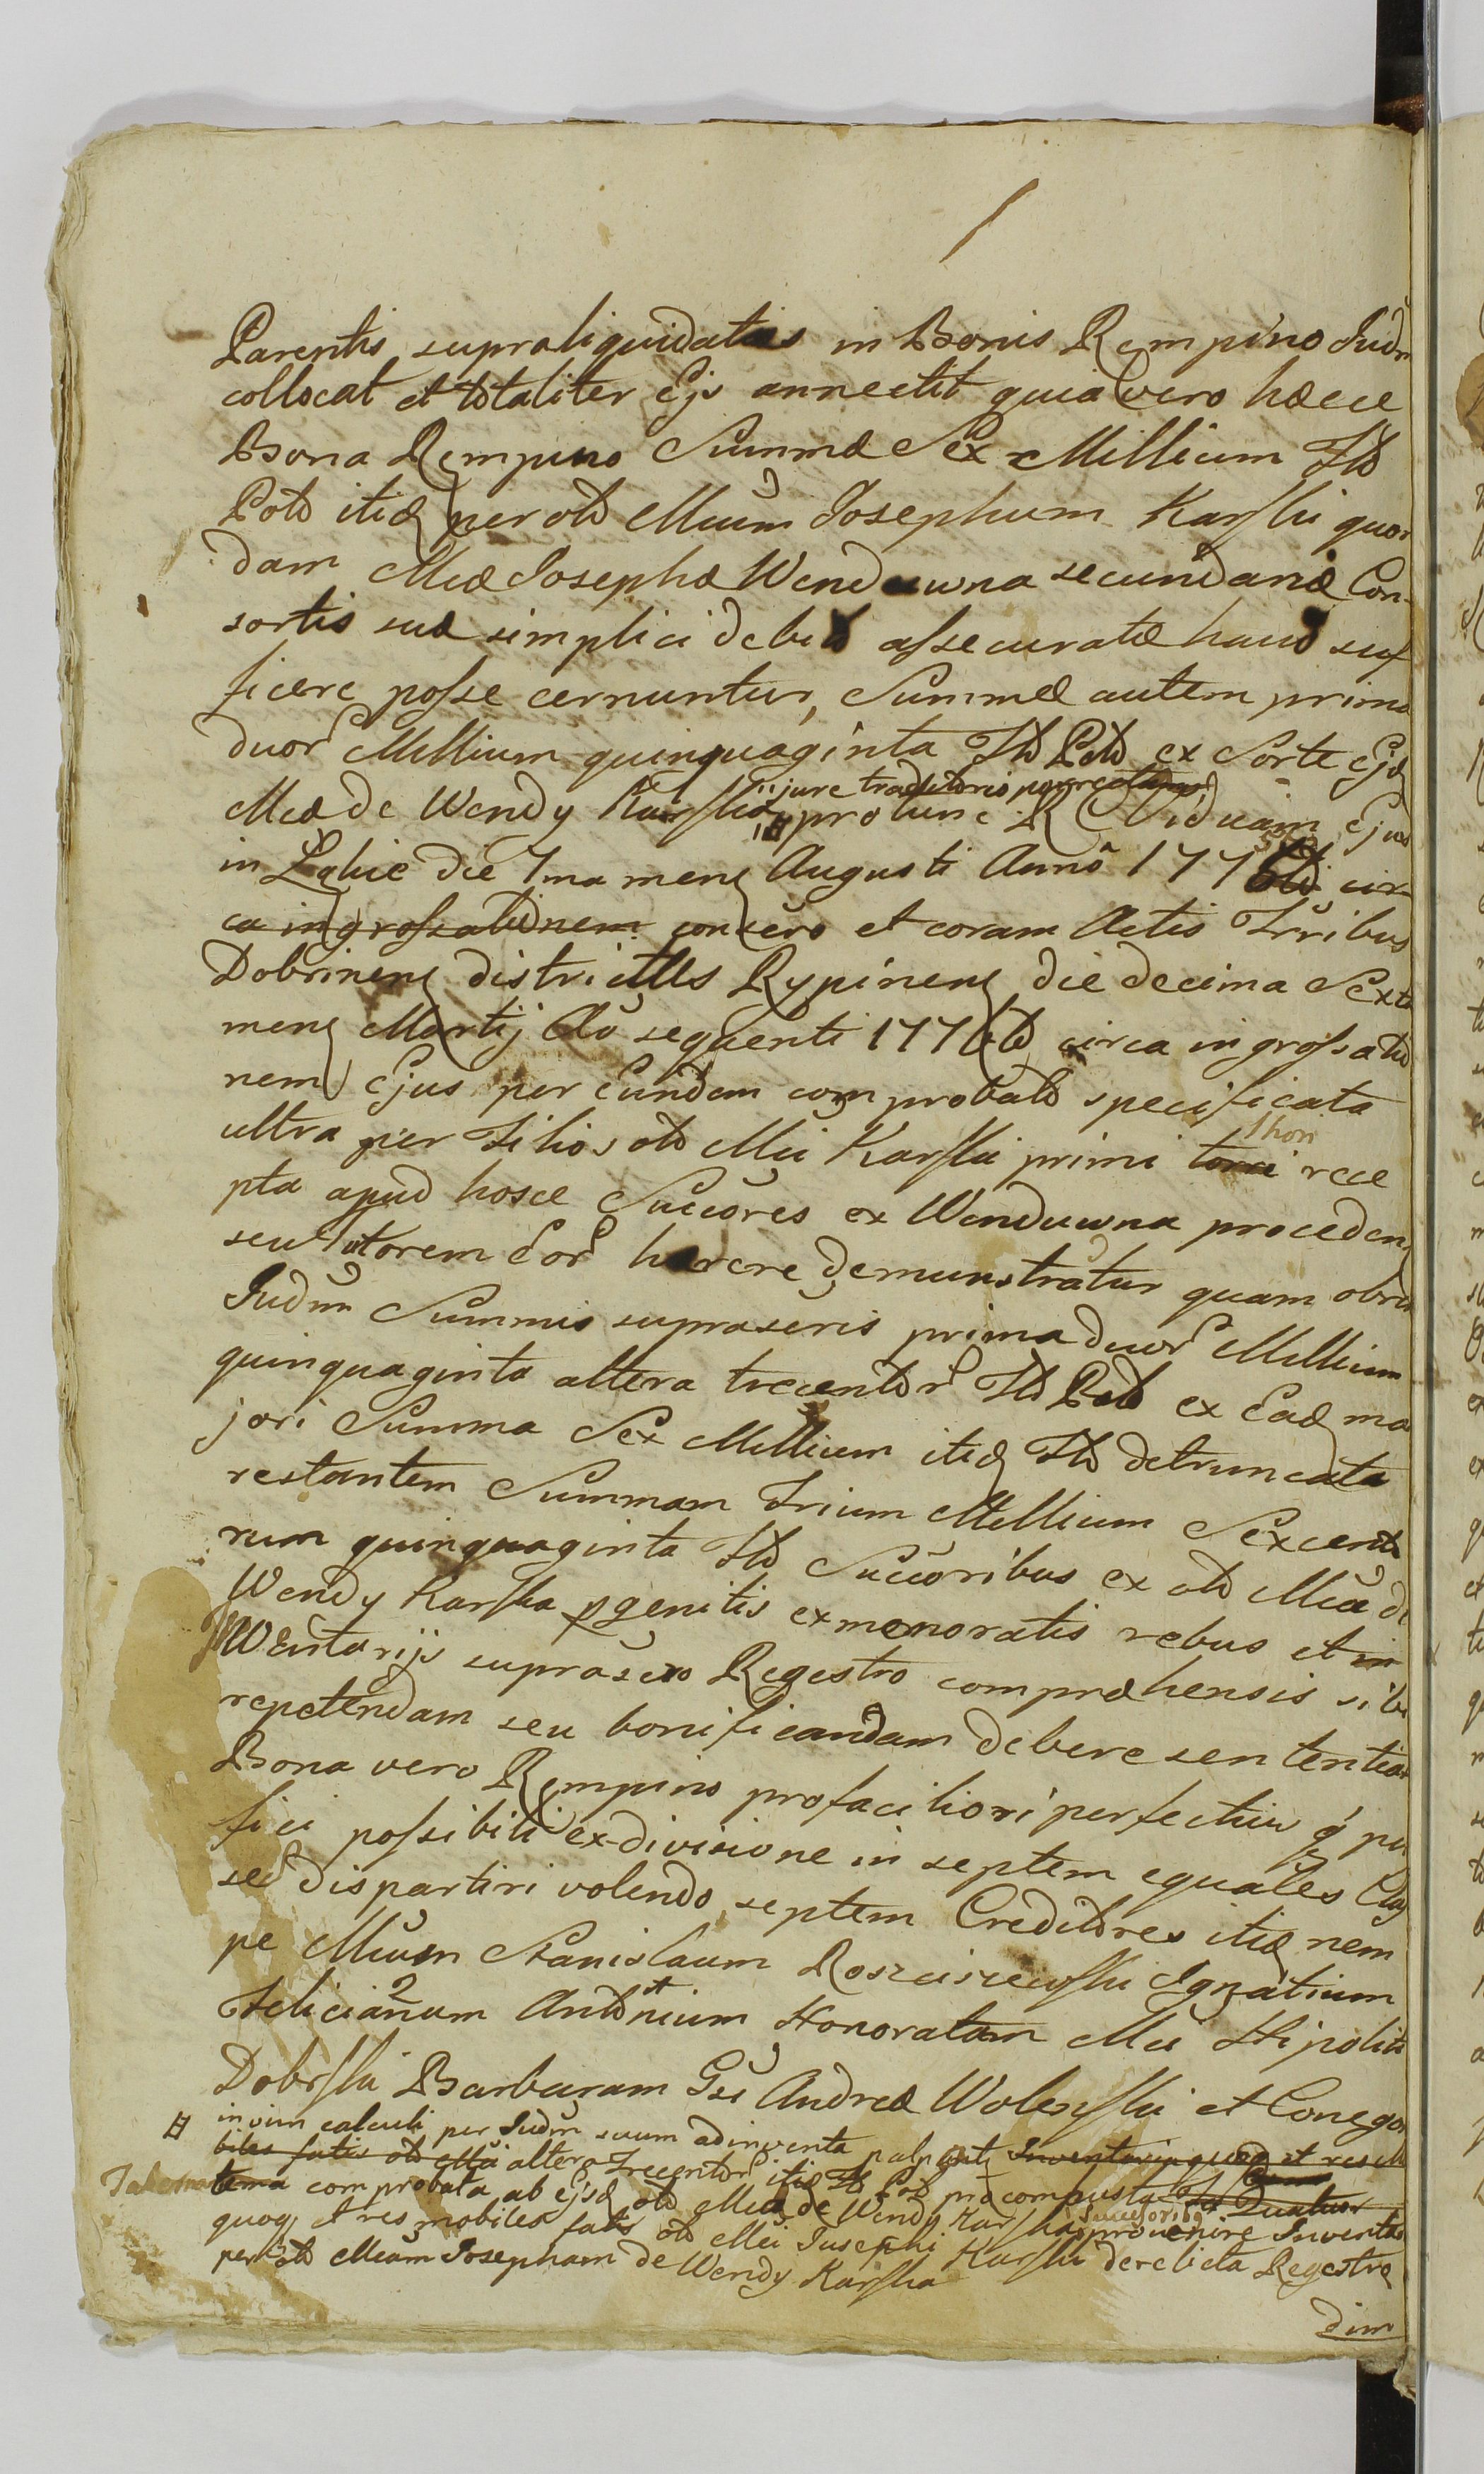 Parentis supraliquidatis in Bonis Rempino Judm
collocat et totaliter Ejs annectit quia vero hæcce
Bona Rempino Summæ Sex Millium Flo
Polo itidẽ per olo Mum Josephum Karski quon
dam Mæ Josephæ Wenduwna secundariæ Con-
sortis suæ simplici debito assecuratæ haud suf
ficere posse cernuntur, Summæ autem prima
duorũ Millium quinquaginta Flo Polo ex Sorte Ejdẽ
Mæ de Wendy Karskiey jure traditorio
⌗ pro tunc Viduam Ejus
in die 7ma mens Augusti Anno 177
ca ingrossationem conscro et coram Actis Trribus
Dobrinens districtus Rypinens die decima Sexta
mens Martij Ao sequenti 1776to circa ingrossatio
nem Ejus per Eundem comprobato specificata
ultra per Filios olo Mei Karski primi thori rece
pta apud hosce Succores ex Wenduwna proceden
seu tutorem Eorũ hærere demunstratur quam obrem
Judm Summis suprascris prima duorũ Millium
quinquaginta altera trecentorũ Flo Polo ex Eadẽ ma
jori Summa Sex Millium itidẽ Flo detruncata
restantem Summam Trium Millium Sexcento
rum quinquaginta Flo Succoribus ex olo Mea de
Wendy Karska pgenitis ex memoratis rebus et in
Wentarijs suprascro Regestro compræhensis sibi
repetendam seu bonificandam debere sententiat
Bona vero Rempino pro faciliori perfectiu
fici possibili ex divisione in septem equales
sed dispartiri volendo septem Creditores itidẽ nem
pe Mum Stanislaum Rosciszewski Ignatium
Felicianum Antonium Honoratam Mei Hipoliti
Dobrski Barbaram Gsi Andreæ Wolenski et Conegon
⌗ in vim calculi per Judm suum adinventa palpati Inventariu quoq et res mo
biles fatis olo Mei altera Trecentorũ itidẽ Flo Polo præcomputa
tema comprobata ab ejsdẽ olo Mea de Wendy Karska Successoribq provenire Inventar
quoq et res mobiles fatis olo Mei Josephi Karski derelicta Regestro
per olo Meam Josepham de Wendy Karska
dim